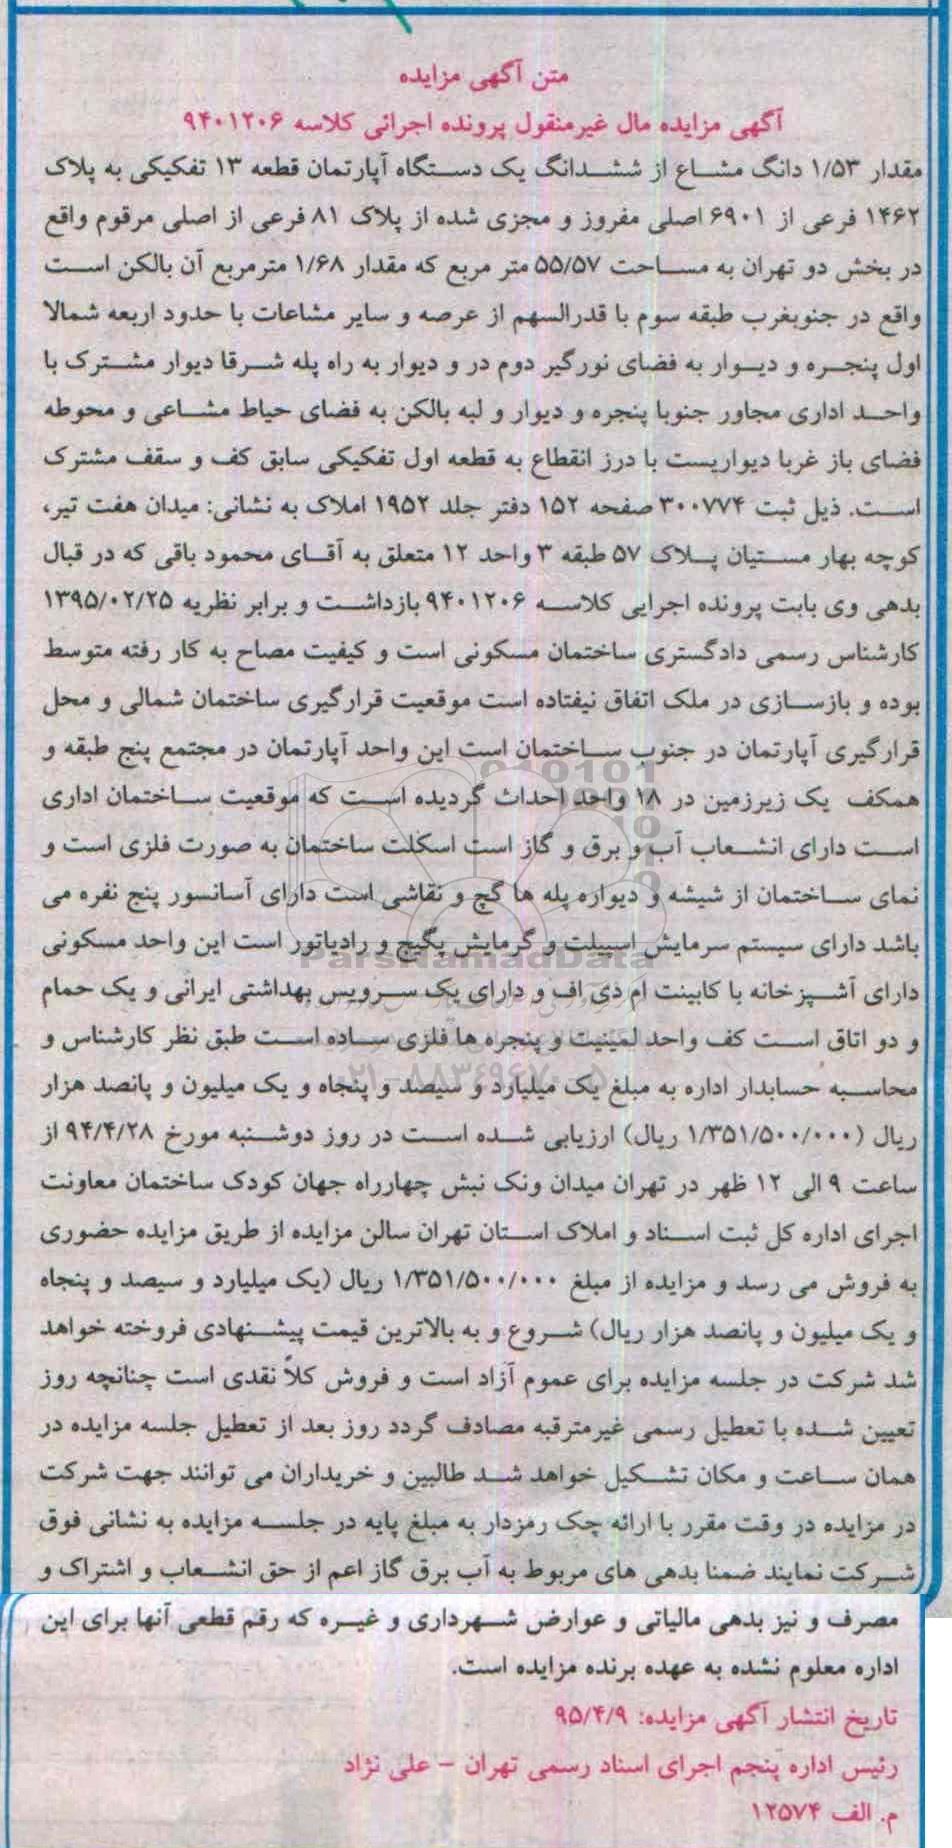 متن آگهی مزایده
آگهی مزایده مال غیرمنقول پرونده اجرائی کلاسه ۹۴۰۱۲۰۶
مقدار ۱/۵۳ دانگ مشاع از ششدانگ یک دستگاه آپارتمان قطعه ۱۳ تفکیکی به پلاک
۱۴۶۲ فرعی از ۶۹۰۱ اصلی مفروز و مجزی شده از پلاک ۸۱ فرعی از اصلی مرقوم واقع
در بخش دو تهران به مساحت ۵۵/۵۷ متر مربع که مقدار ۱/۶۸ مترمربع آن بالکن است
واقع در جنوبغرب طبقه سوم با قدرالسهم از عرصه و سایر مشاعات با حدود اربعه شمالا
اول پنجره و دیوار به فضای نورگیر دوم در و دیوار به راه پله شرقا دیوار مشترک با
واحد اداری مجاور جنوبا پنجره و دیوار و لبه بالکن به فضای حیاط مشاعی و محوطه
فضای باز غربا دیواریست با درز انقطاع به قطعه اول تفکیکی سابق کف و سقف مشترک
است. ذیل ثبت ۳۰۰۷۷۴ صفحه ۱۵۲ دفتر جلد ۱۹۵۲ املاک به نشانی: میدان هفت تیر،
کوچه بهار مستیان پلاک ۵۷ طبقه ۳ واحد ۱۲ متعلق به آقای محمود باقی که در قبال
بدهی وی بابت پرونده اجرایی کلاسه ۹۴۰۱۲۰۶ بازداشت و برابر نظریه ۱۳۹۵/۰۲/۲۵
کارشناس رسمی دادگستری ساختمان مسکونی است و کیفیت مصاح به کار رفته متوسط
بوده و بازسازی در ملک اتفاق نیفتاده است موقعیت قرارگیری ساختمان شمالی و محل
قرارگیری آپارتمان در جنوب ساختمان است این واحد آپارتمان در مجتمع پنج طبقه و
همکف یک زیرزمین در ۱۸ واحد احداث گردیده است که موقعیت ساختمان اداری
است دارای انشعاب آب و برق و گاز است اسکلت ساختمان به صورت فلزی است و
نمای ساختمان از شیشه و دیواره پله ها گچ و نقاشی است دارای آسانسور پنج نفره می
باشد دارای سیستم سرمایش اسپیلت و گرمایش پگیج و رادیاتور است این واحد مسکونی
دارای آشپزخانه با کابینت ام دی اف و دارای یک سرویس بهداشتی ایرانی و یک حمام
و دو اتاق است کف واحد لمینیت و پنجره ها فلزی ساده است طبق نظر کارشناس و
محاسبه حسابدار اداره به مبلغ یک میلیارد و سیصد و پنجاه و یک میلیون و پانصد هزار
ریال (۱/۳۵۱/۵۰۰/۰۰۰ ریال) ارزیابی شده است در روز دوشنبه مورخ ۹۴/۴/۲۸ از
ساعت ۹ الی ۱۲ ظهر در تهران میدان ونک نبش چهارراه جهان کودک ساختمان معاونت
اجرای اداره کل ثبت اسناد و املاک استان تهران سالن مزایده از طریق مزایده حضوری
به فروش می رسد و مزایده از مبلغ ۱/۳۵۱/۵۰۰/۰۰۰ ریال (یک میلیارد و سیصد و پنجاه
و یک میلیون و پانصد هزار ریال) شروع و به بالاترین قیمت پیشنهادی فروخته خواهد
شد شرکت در جلسه مزایده برای عموم آزاد است و فروش کلاً نقدی است چنانچه روز
تعیین شده با تعطیل رسمی غیرمترقبه مصادف گردد روز بعد از تعطیل جلسه مزایده در
همان ساعت و مکان تشکیل خواهد شد طالبین و خریداران می توانند جهت شرکت
در مزایده در وقت مقرر با ارائه چک رمزدار به مبلغ پایه در جلسه مزایده به نشانی فوق
شرکت نمایند ضمنا بدهی های مربوط به آب برق گاز اعم از حق انشعاب و اشتراک و
مصرف و نیز بدهی مالیاتی و عوارض شهرداری و غیره که رقم قطعی آنها برای این
اداره معلوم نشده به عهده برنده مزایده است.
تاریخ انتشار آگهی مزایده: ۹۵/۴/۹
رئیس اداره پنجم اجرای اسناد رسمی تهران - علی نژاد
م. الف ۱۲۵۷۴
ParsNamadData
۰۲۱-۸۸۳۴۹۶۷۰-۵